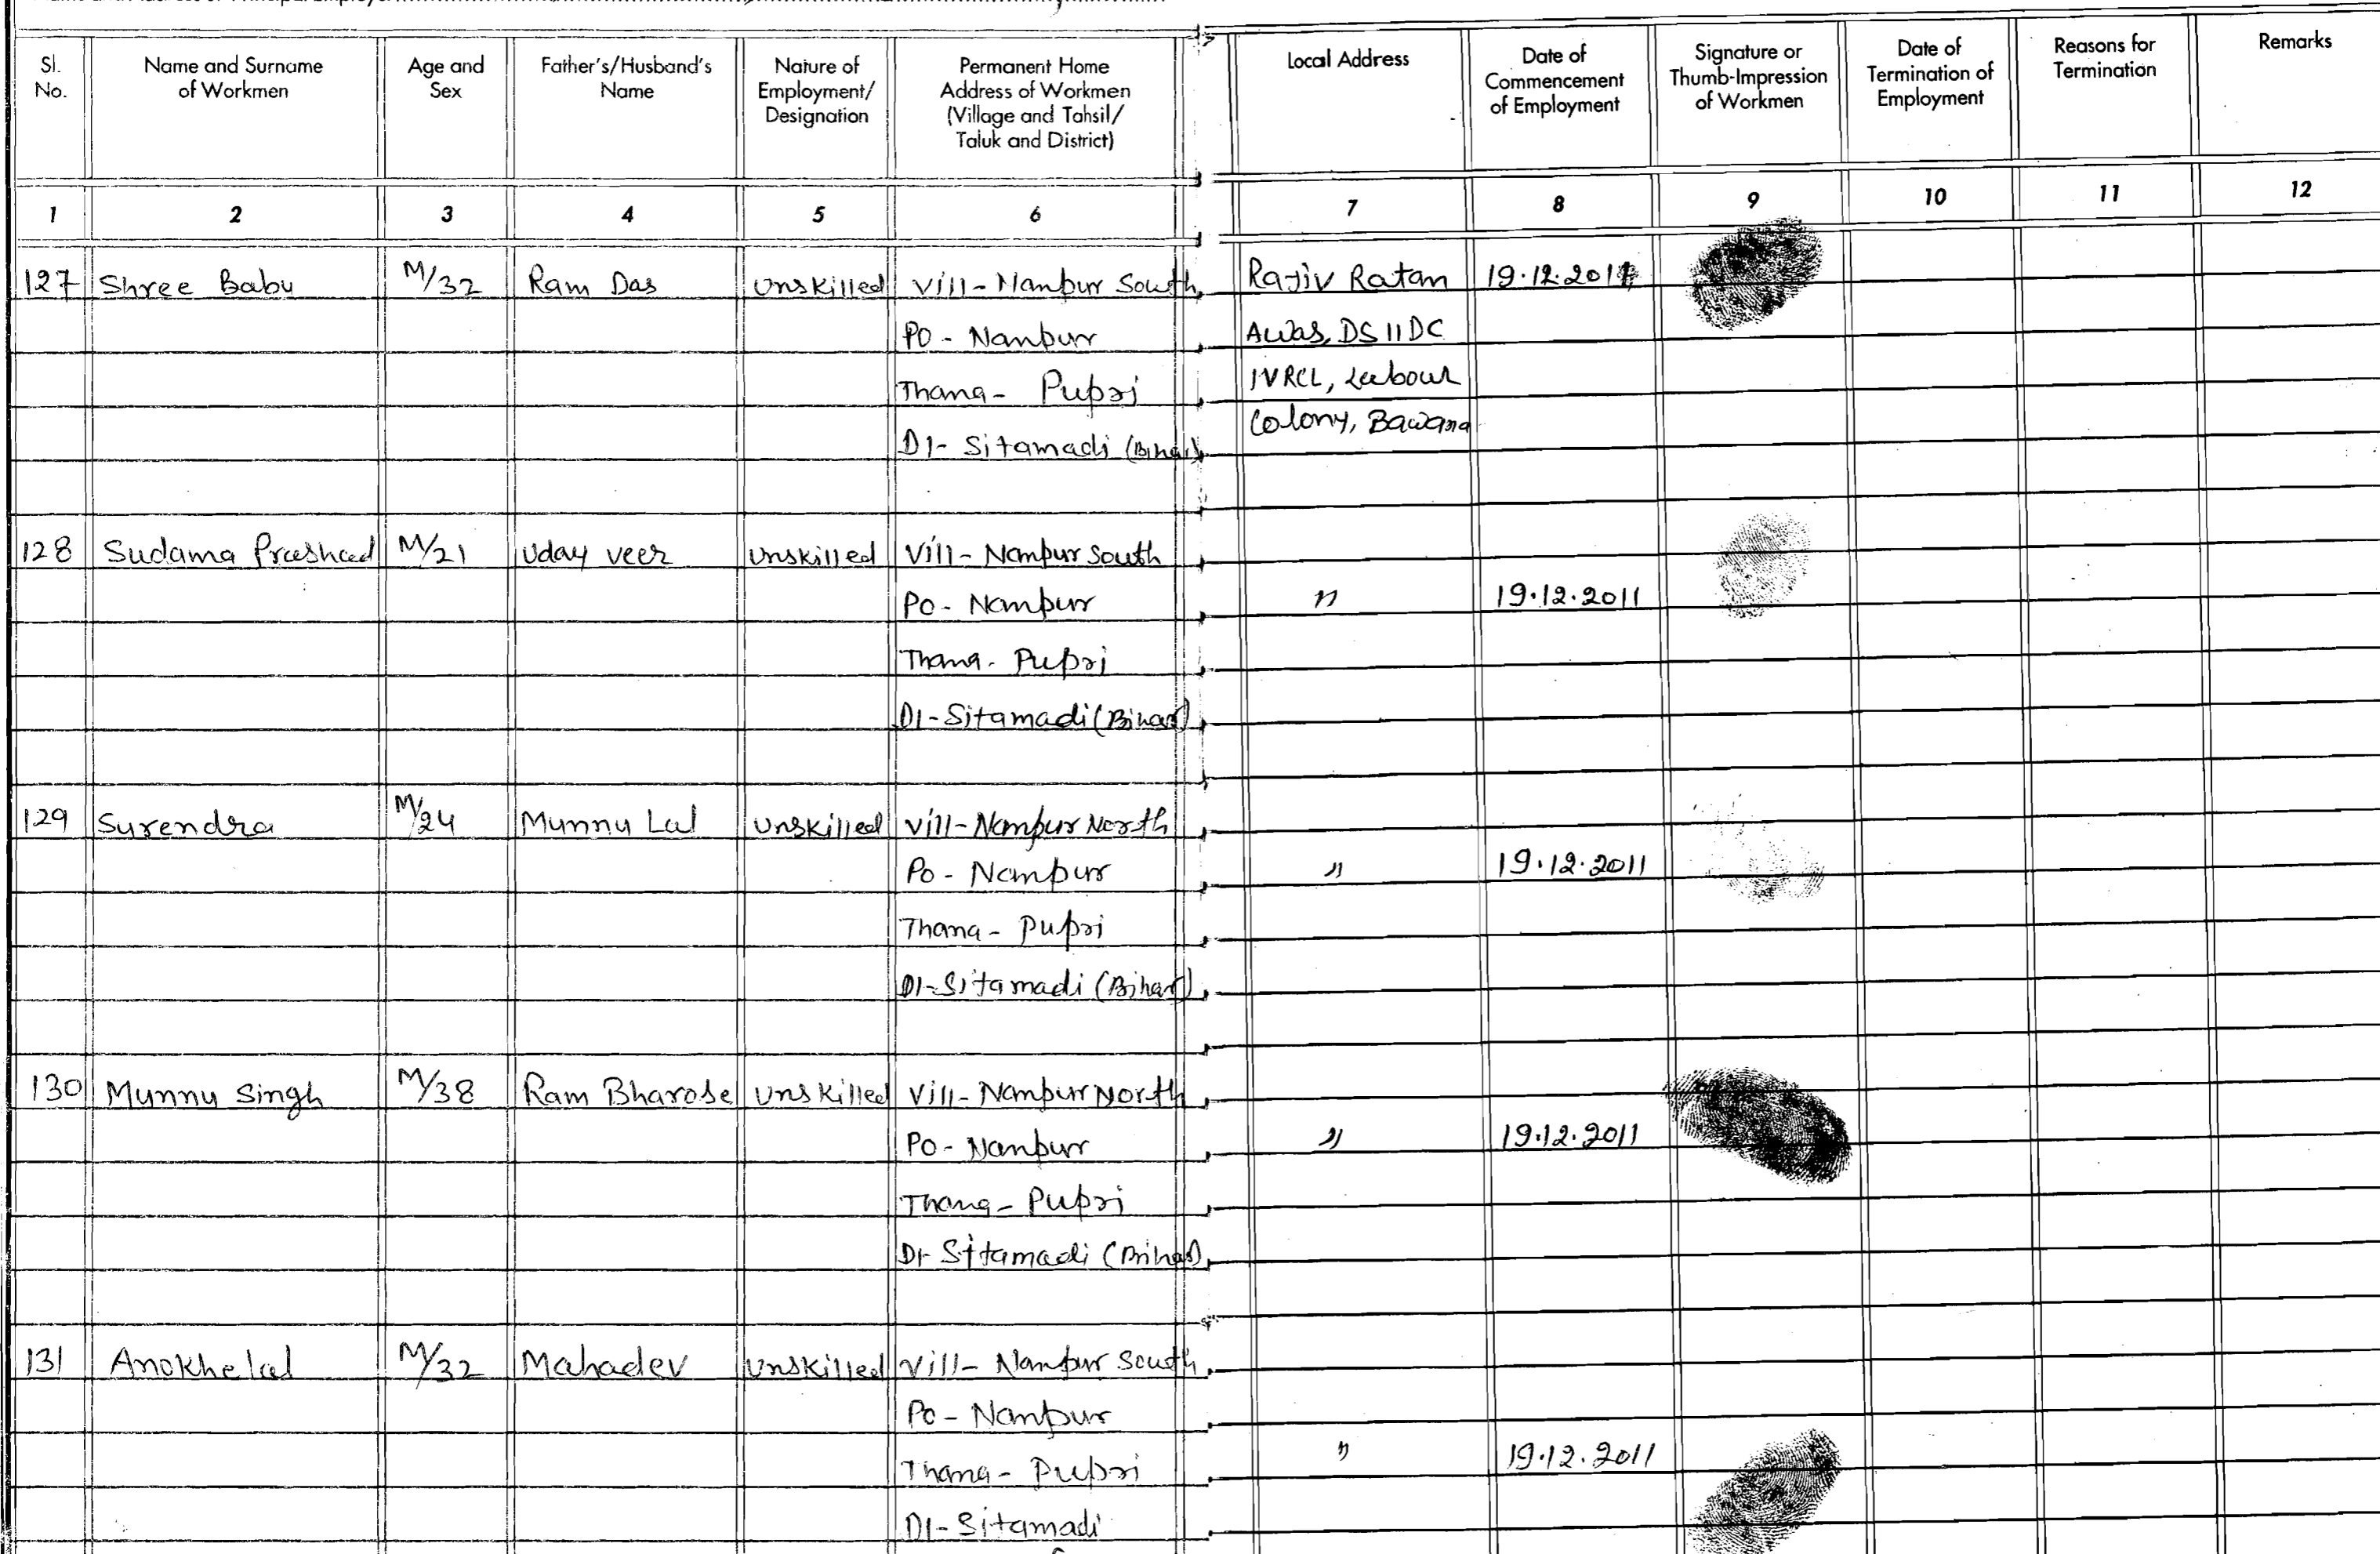 Sl. No.
Name and Surname of Workmen
Age and Sex
Father's/Husband's Name
Nature of Employment/ Designation
Permanent Home Address of Workmen (Village and Tahsil/ Taluk and District)
Local Address
Date of Commencement of Employment
Signature or Thumb-Impression of Workmen
Date of Termination of Employment
Reasons for Termination
Remarks
1 2 3 4 5 6 7 8 9 10 11 12
127 Shree Babu M/32 Ram Das Unskilled Vill- Nanpur South Rajiv Ratan 19.12.2011
PO - Nanpur Awas, DSIIDC
Thana - Pupri IVRCL, Labour
DI- Sitamadi (Bihar) Colony, Bawana
128 Sudama Prashad M/21 Uday veer Unskilled Vill- Nanpur South
PO- Nanpur " 19.12.2011
Thana- Pupri
DI-Sitamadi (Bihar)
129 Surendra M/24 Munnu Lal Unskilled Vill-Nanpur North
PO- Nanpur " 19.12.2011
Thana- Pupri
DI-Sitamadi (Bihar)
130 Munnu Singh M/38 Ram Bharose Unskilled Vill- Nanpur North
PO- Nanpur " 19.12.2011
Thana- Pupri
DI- Sitamadi (Bihar)
131 Anokhelal M/32 Mahadev Unskilled Vill- Nanpur South
PO - Nanpur
Thana- Pupri " 19.12.2011
DI-Sitamadi